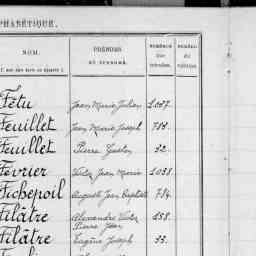 PHABÉTIQUE.
NOM. PRÉNOMS ET SURNOMS. NUMÉROS
Fétu Jean Marie Julien 1087.
Feuillet Jean Marie Joseph 788.
Feuillet Pierre Gaston 32.
Février Victor Jean Marie 1038
Fichepoil Auguste Jean Baptiste 784.
Filâtre Alexandre Victor 158.
Pierre Jean
Filâtre Eugène Joseph 33.